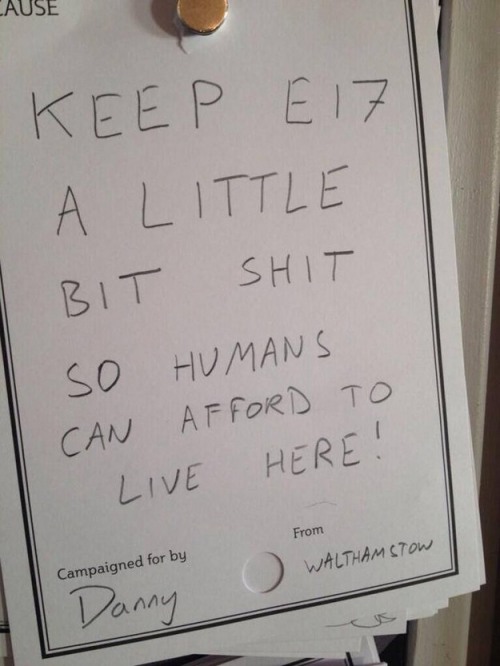 CAUSE
KEEP E17
A LITTLE
BIT SHIT
SO HUMANS
CAN AFFORD TO
LIVE HERE!
Campaigned for by
Danny
From
WALTHAMSTOW